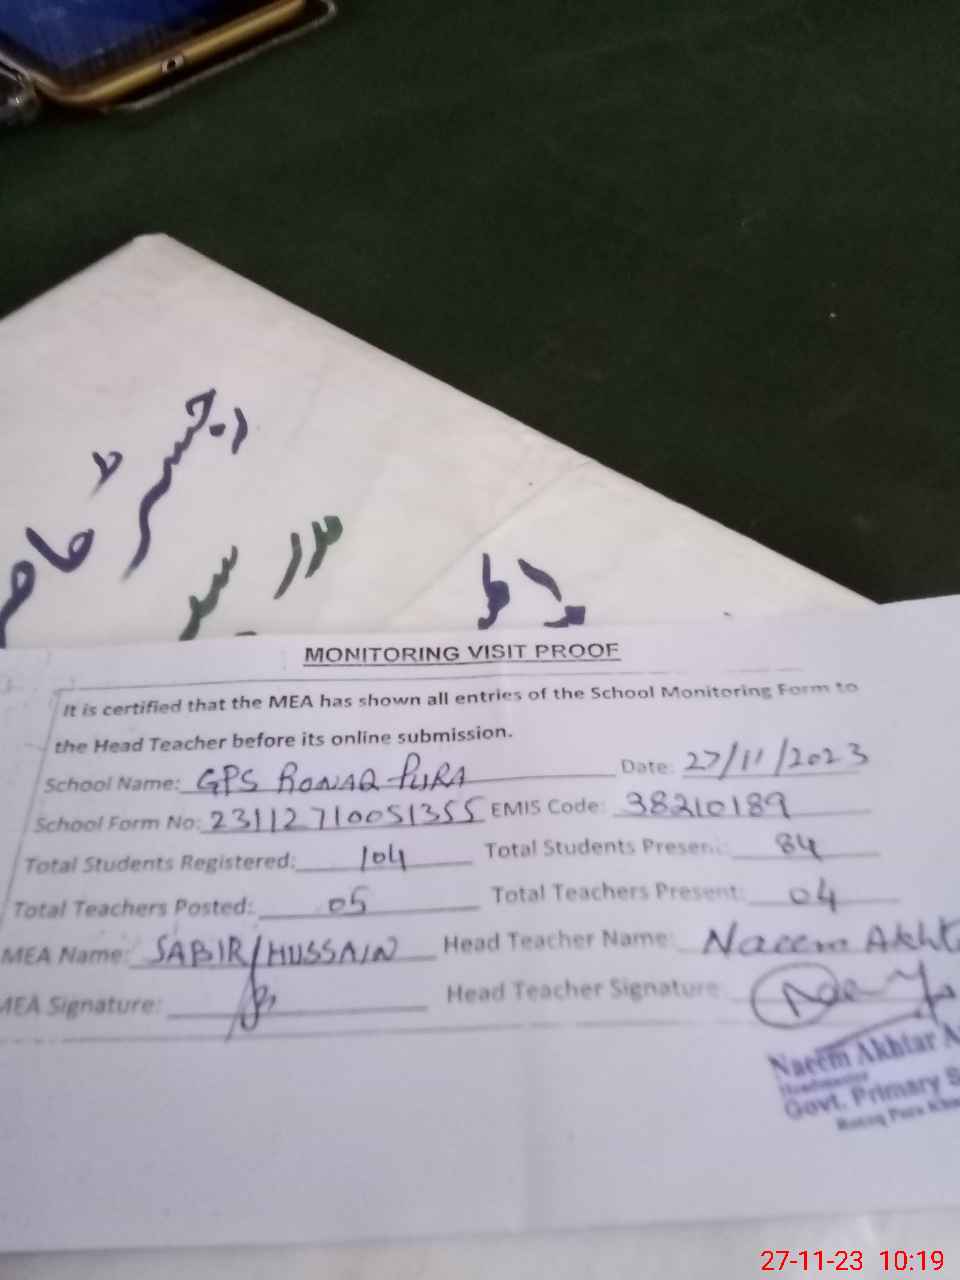 رجسٹر حاضر
مدرسہ
MONITORING VISIT PROOF
It is certified that the MEA has shown all entries of the School Monitoring Form to
the Head Teacher before its online submission.
School Name: GPS RONAQ PURA Date: 27/11/2023
School Form No: 23112710051355 EMIS Code: 38210189
Total Students Registered: 104 Total Students Present: 84
Total Teachers Posted: 05 Total Teachers Present: 04
MEA Name: SABIR HUSSAIN Head Teacher Name: Naeem Akht
MEA Signature: Head Teacher Signature:
Naeem Akhtar A
Headmaster
Govt. Primary S
Ronaq Pura Kh
27-11-23 10:19